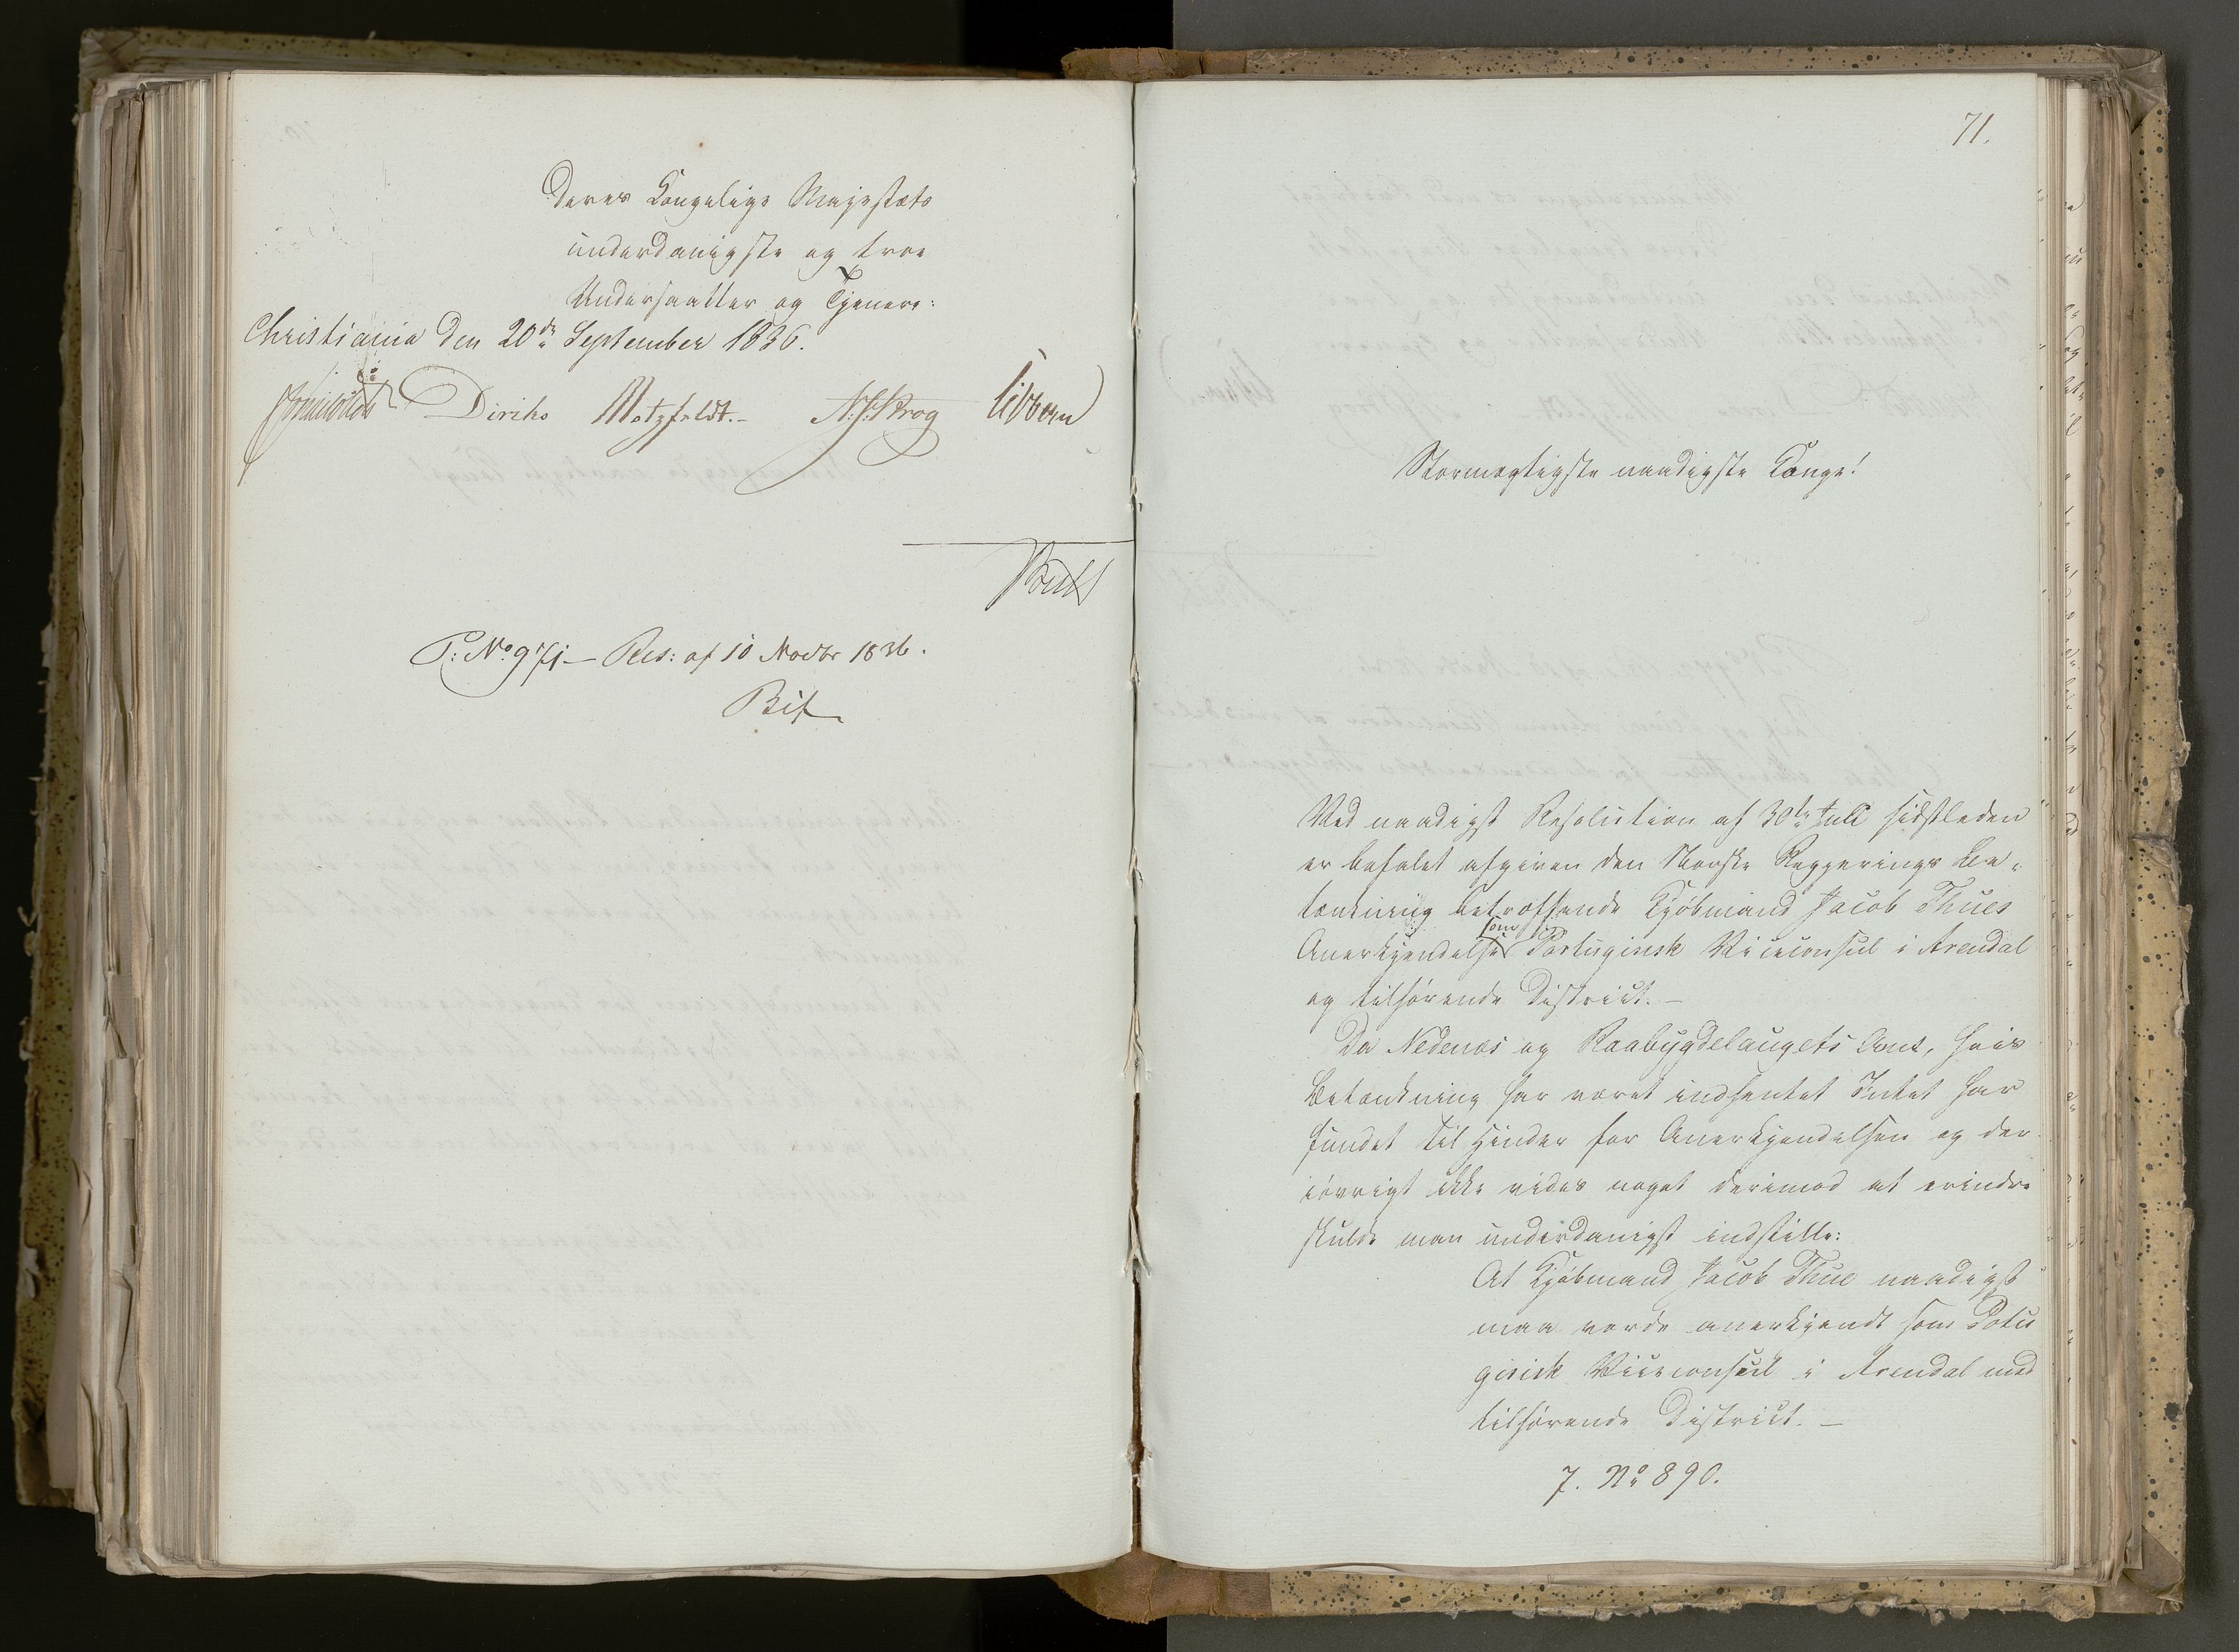 Deres Kongelige Majestæts
underdanigste og troe
Undersaatter og Tjenere:
Christiania den 20de September 1836.
Diriks Motzfeldt.- N. J. Krog Vibern
P: No 971 — Res: af 10 Novbr 1836.
71.
Stormægtigste naadigste Konge!
Ved naadigst Resolution af 30te Juli sidstleden
er befalet afgiven den Norske Reggerings Be-
tænkning betræffende Kjøbmand Jacob Thues
Anerkjendelse som Portuginsk Viceconsul i Arendal
og tilhørende District. —
Da Nedenæs og Raabygdelaugets Amt, hvis
Betænkning har været indhentet Intet har
fundet til Hinder for Anerkjendelsen og der
iøvrigt ikke vides noget derimod at erindre
skulde man underdanigst indstille:
At Kjøbmand Jacob Thue naadigst
maa vorde anerkjendt som Potu
gisisk Viceconsul i Arendal med
tilhørende District. —
7. No 890.